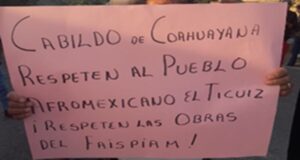 CABILDO DE COAHUAYANA
RESPETEN AL PUEBLO
AFROMEXICANO EL TICUIZ
¡RESPETEN LAS OBRAS
DEL FAISPIAM!